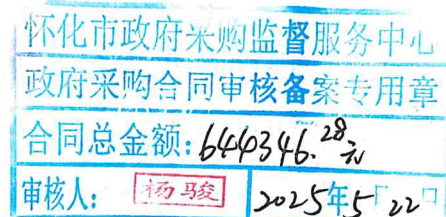 怀化市政府采购监督服务中心
政府采购合同审核备案专用章
合同总金额：644346.28元
审核人：杨骏 2025年5月22日